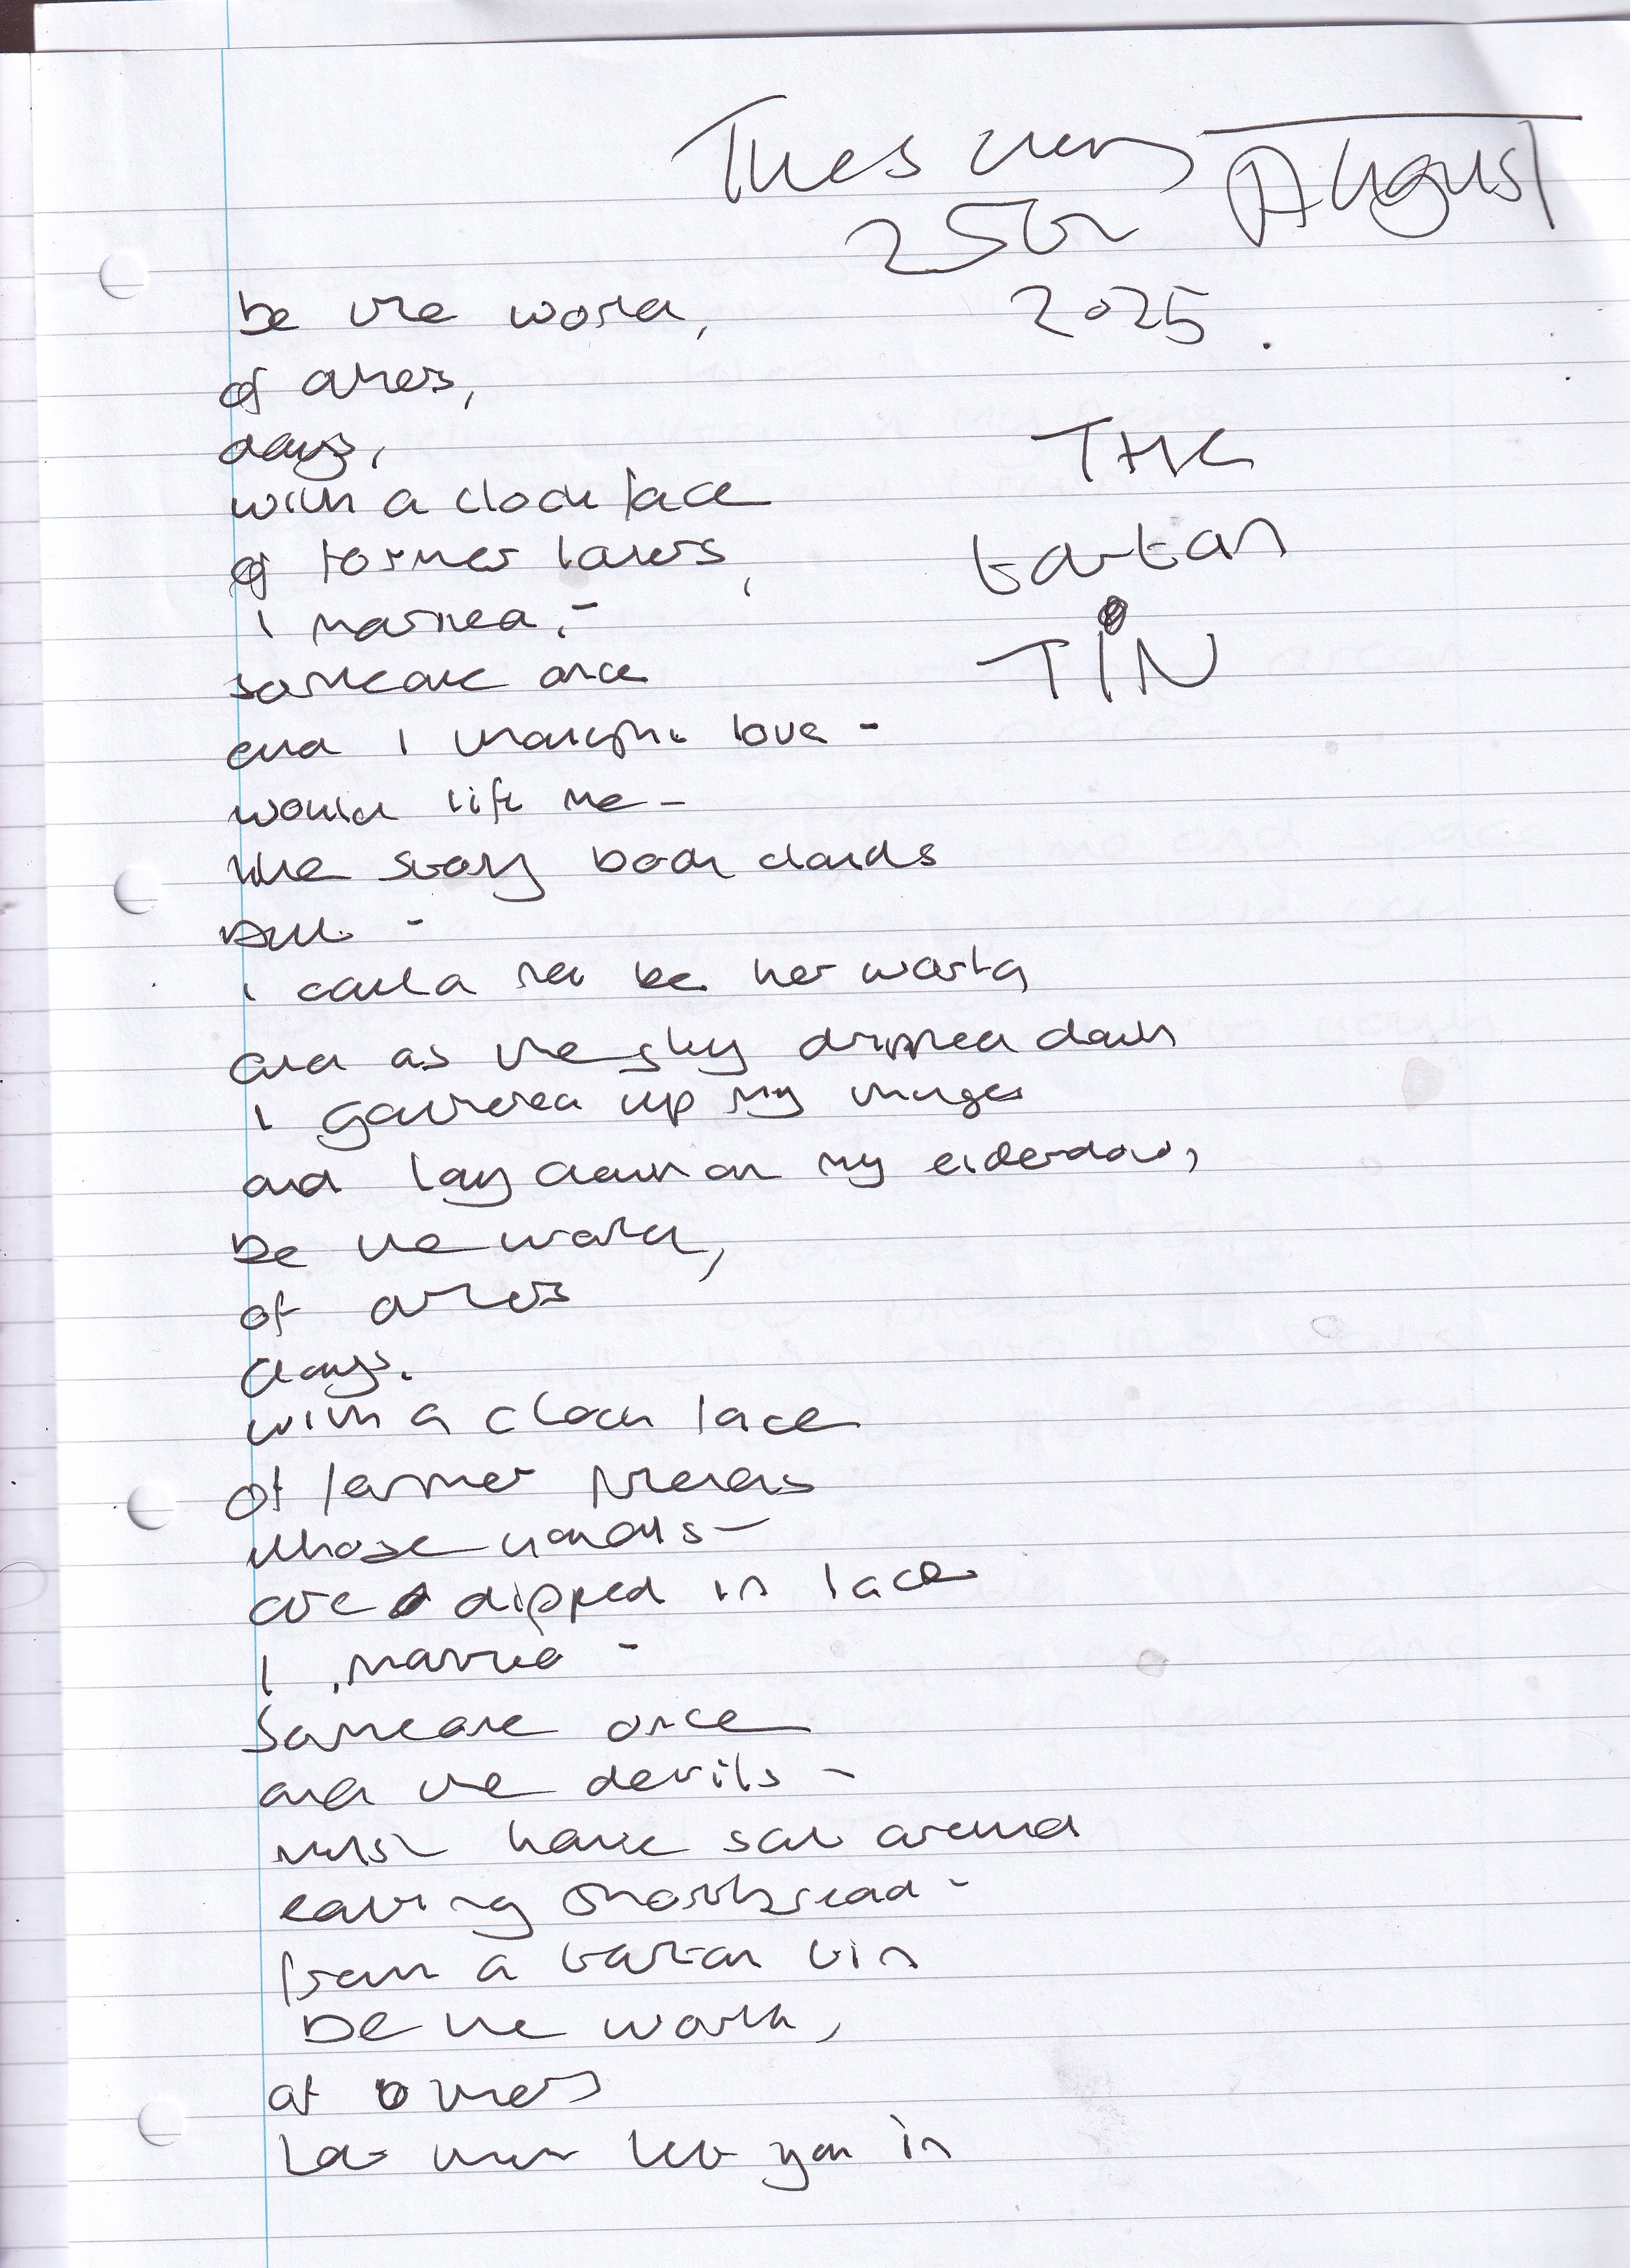 Tuesday August
25th
2025.
THE
tartan
TIN
be the world,
of others,
days,
with a clock face
of former lovers,
I married, -
someone once
and I thought love -
would lift me -
like story book clouds
but -
I could not be her world
and as the sky dripped down
I gathered up my things
and lay down on my eiderdown,
be the world,
of others
days.
with a clock face
of former friends
whose hands -
are dipped in lace
I married -
someone once
and the devils -
must have sat around
eating shortbread -
from a tartan tin
be the world,
of others
let you in